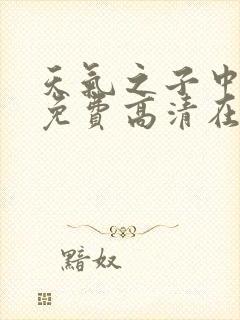 天气之子中
免费高清在
黯奴